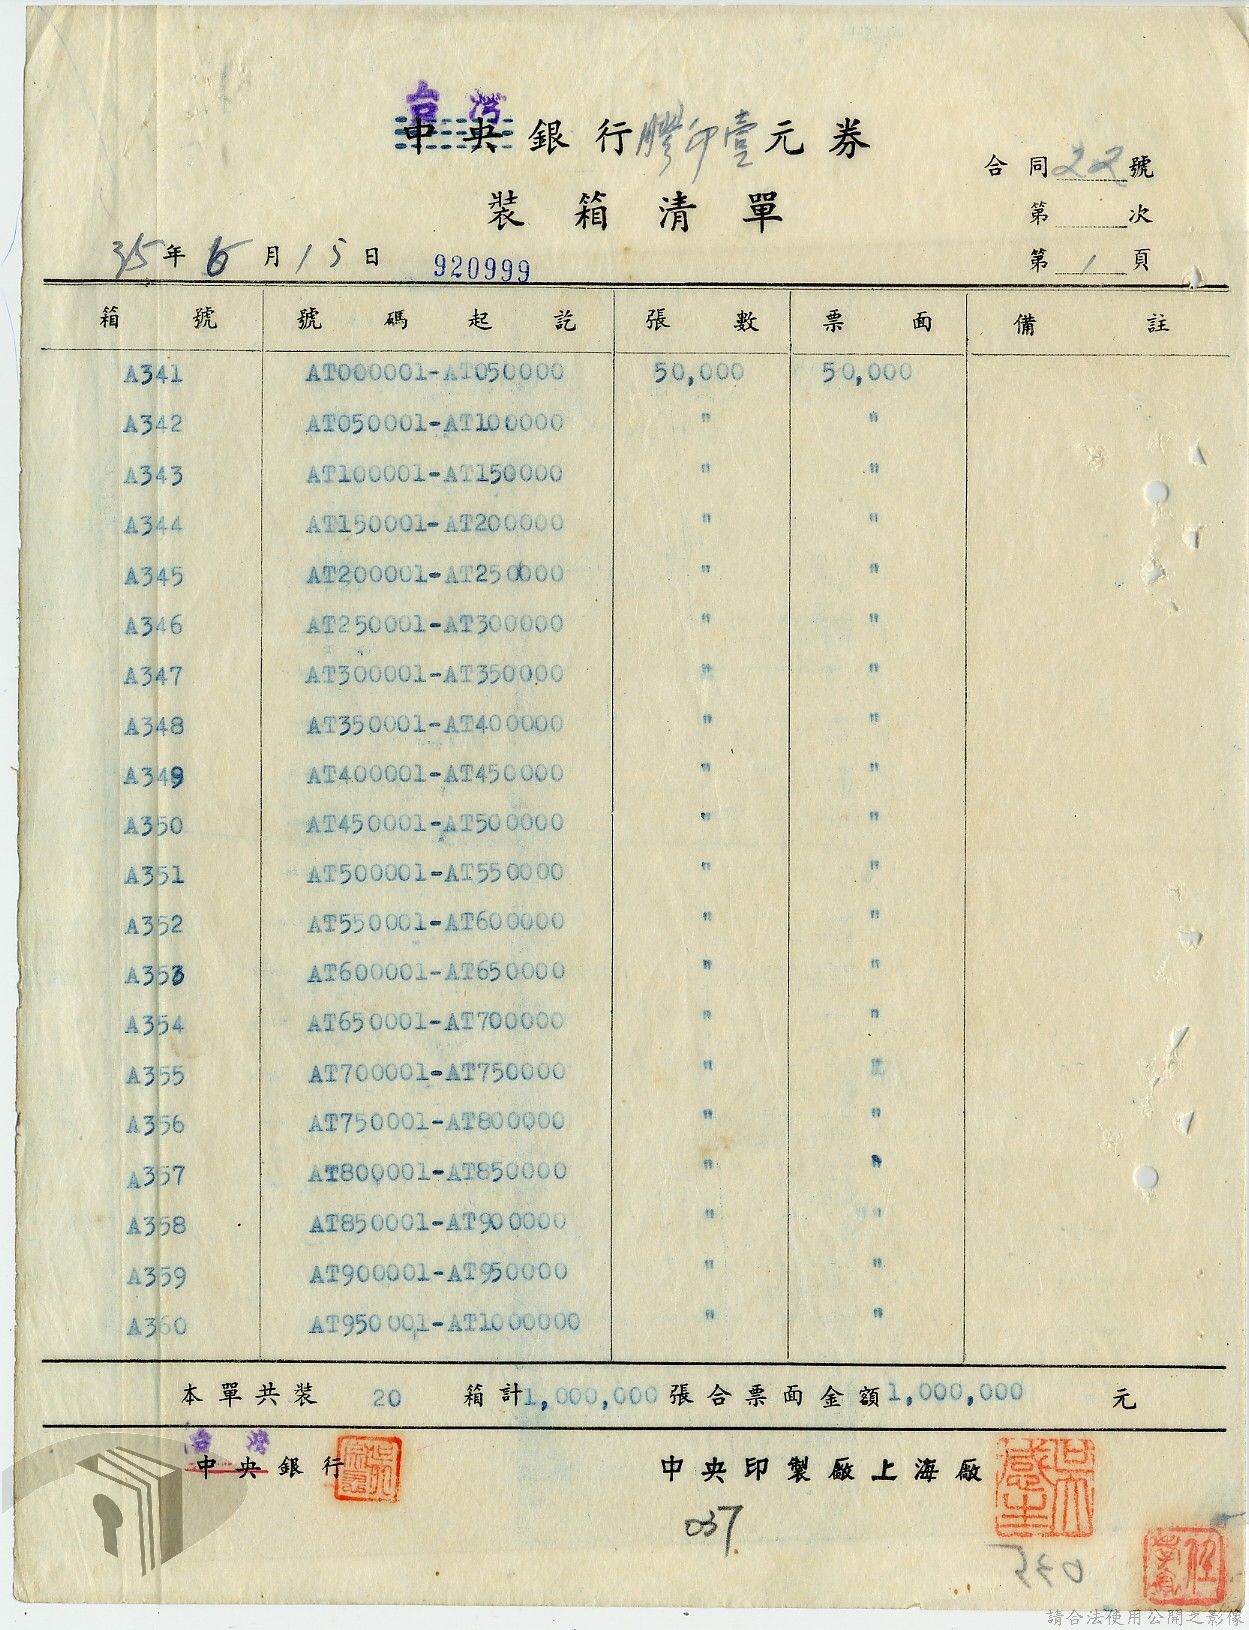 台灣
中央銀行膠印壹元券
合同22號
裝箱清單
第 次
35年6月15日 920999
第1頁
箱號 號碼起訖 張數 票面 備註
A341 AT000001-AT050000 50,000 50,000
A342 AT050001-AT100000 " "
A343 AT100001-AT150000 " "
A344 AT150001-AT200000 " "
A345 AT200001-AT250000 " "
A346 AT250001-AT300000 " "
A347 AT300001-AT350000 " "
A348 AT350001-AT400000 " "
A349 AT400001-AT450000 " "
A350 AT450001-AT500000 " "
A351 AT500001-AT550000 " "
A352 AT550001-AT600000 " "
A353 AT600001-AT650000 " "
A354 AT650001-AT700000 " "
A355 AT700001-AT750000 " "
A356 AT750001-AT800000 " "
A357 AT800001-AT850000 " "
A358 AT850001-AT900000 " "
A359 AT900001-AT950000 " "
A360 AT950001-AT1000000 " "
本單共裝 20 箱計1,000,000張合票面金額1,000,000 元
台灣
中央銀行 中央印製廠上海廠
037
請合法使用公開之影像